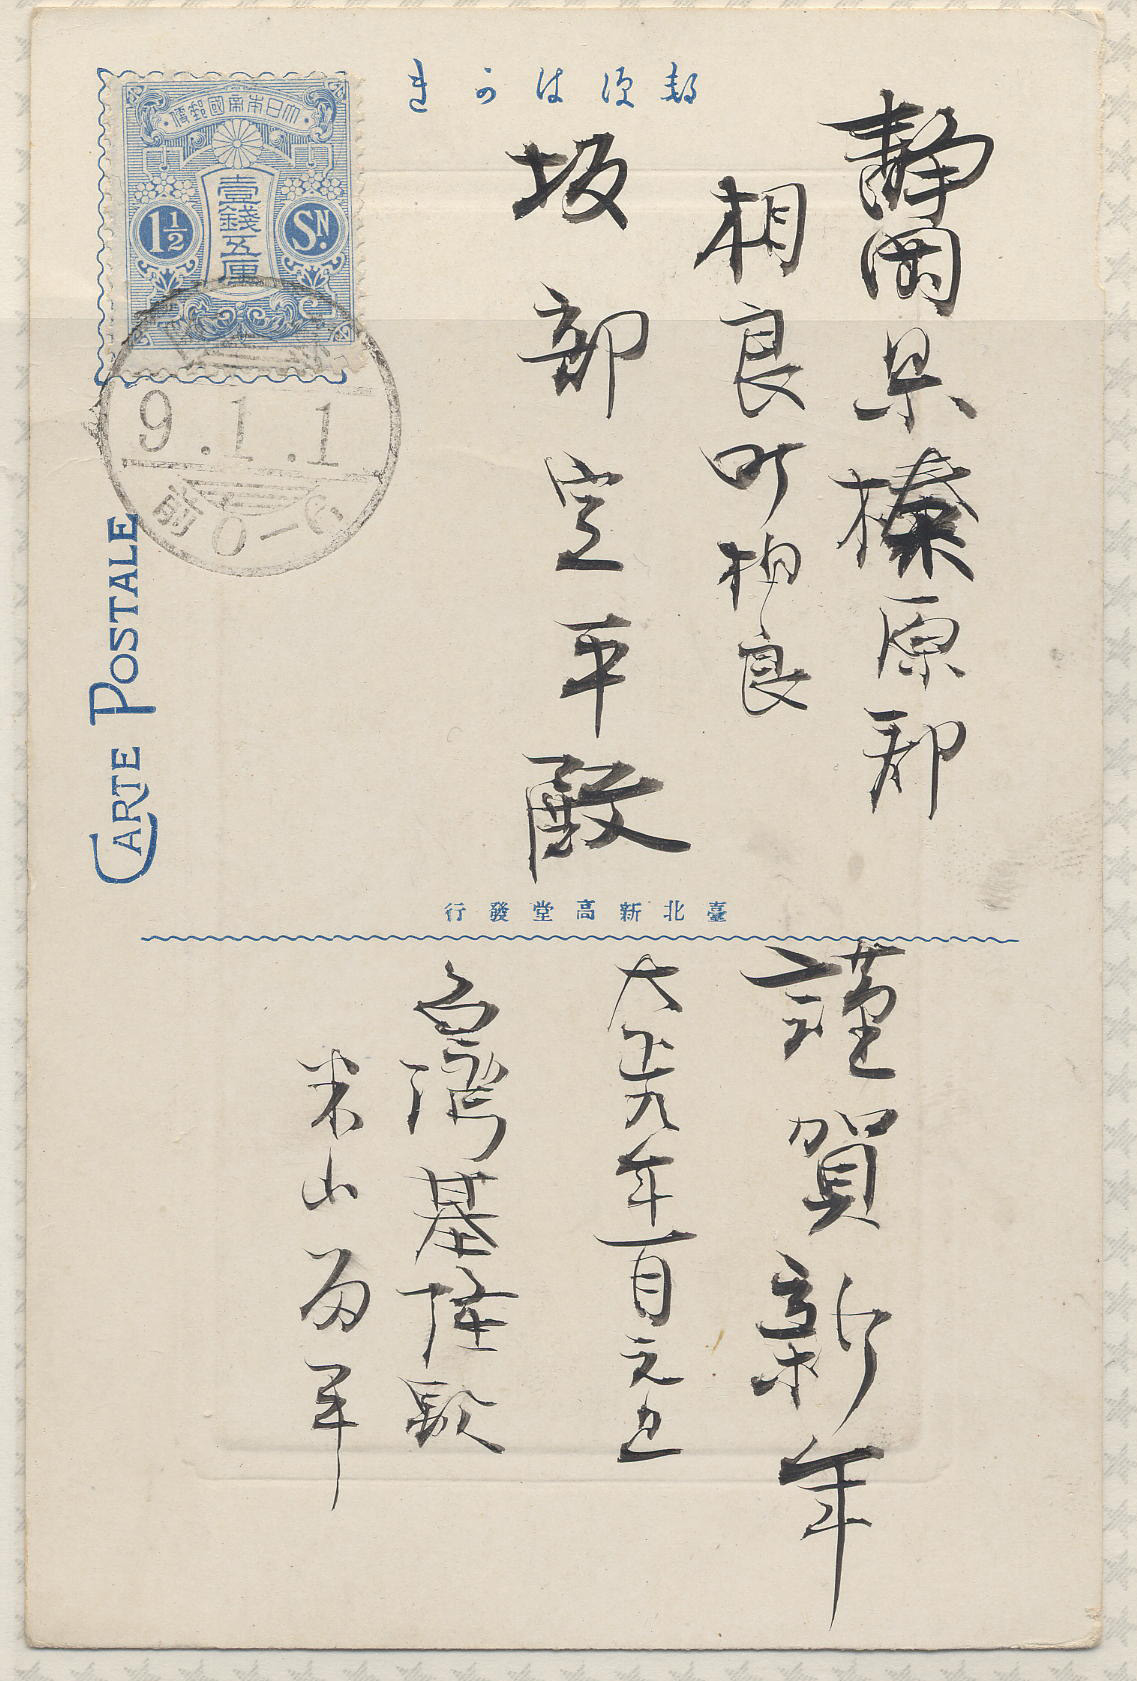 郵便はかき
大日本帝國郵便
壹錢五厘
1½
SN.
9.1.1
前0-6
CARTE POSTALE
静岡县榛原郡
相良町相良
坂部定平殿
臺北新高堂發行
謹賀新年
大正九年一月元旦
台湾基隆駅
米山